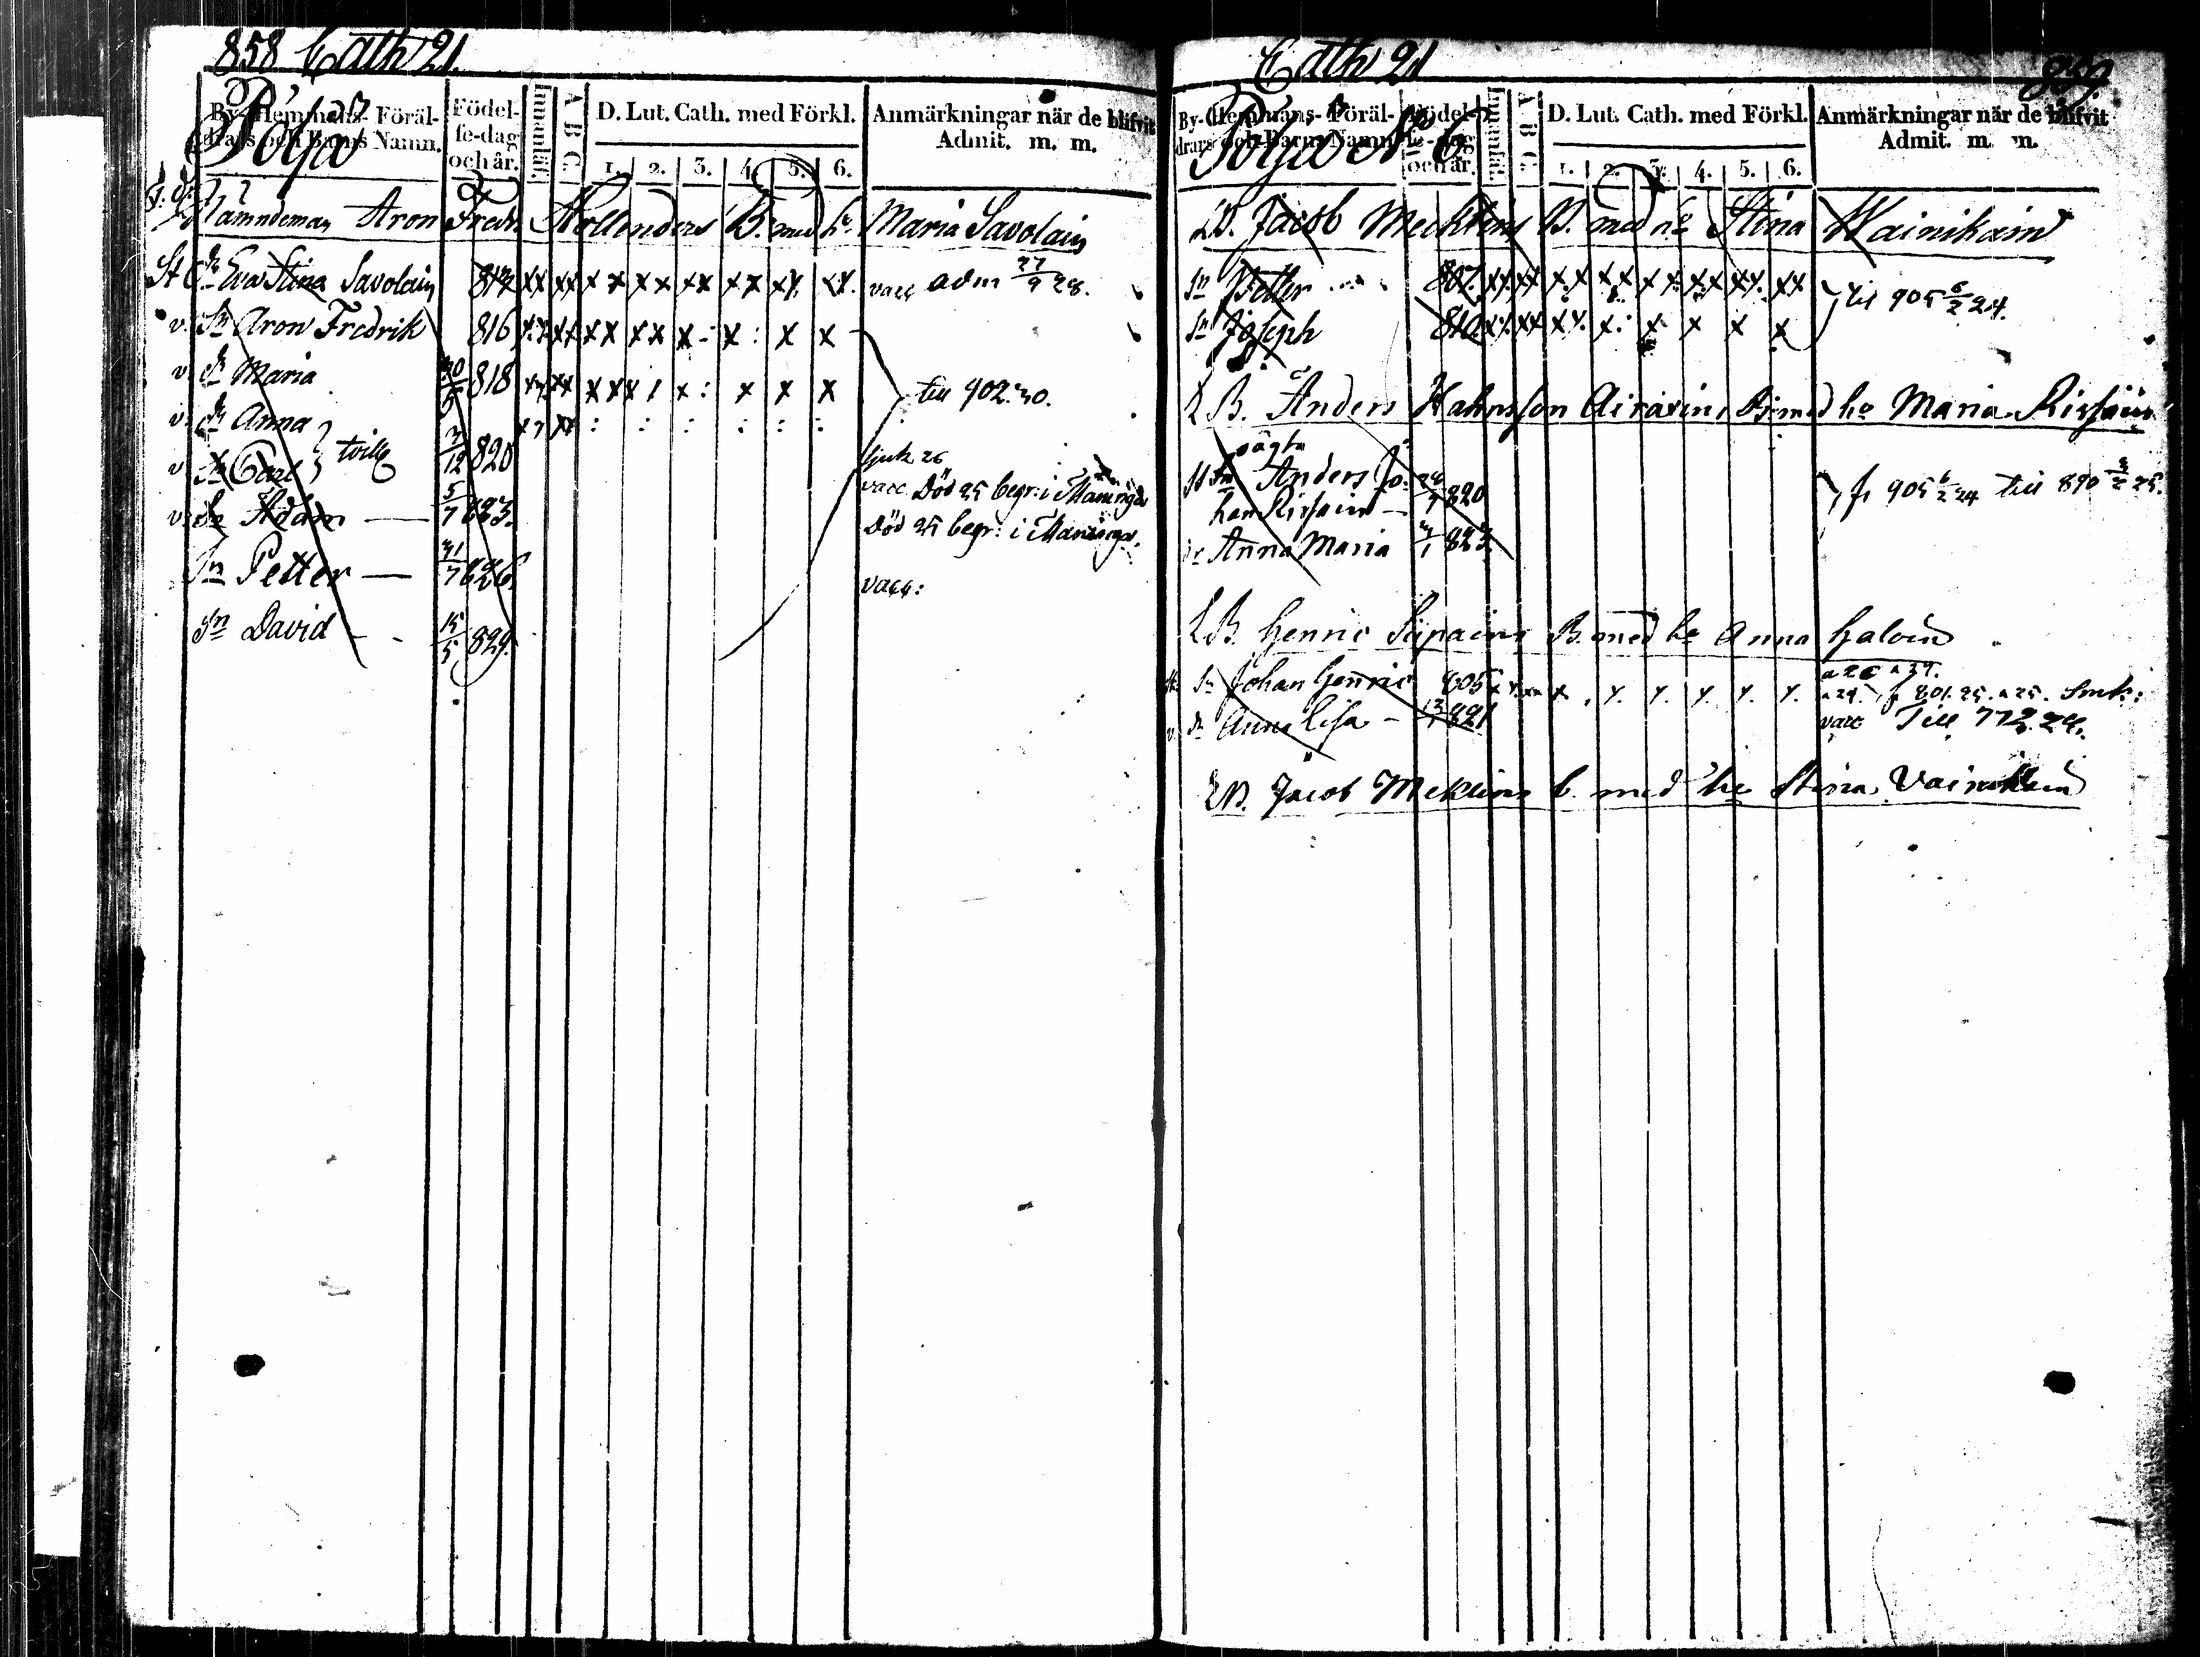 858 Cath 21.
By- Hemmans- Föräl-
drars och Barns Namn.
Födel-
se-dag
och år.
Innanläs.
A B C
D. Lut. Cath. med Förkl.
1. 2. 3. 4. 5. 6.
Anmärkningar när de blifvit
Admit. m. m.
Nämndeman Aron Fredr. Hollenders B. med h. Maria Savolain
Dr Eva Stina Savolain 813 xx xx x x x x xx xx xx xx. vacc adm 27/9 28.
v. Sn Aron Fredrik 816 xx xx xx xx x : x : x x
v. dr Maria 818 xx xx x : x x x till 902. 30.
v. dr Anna : : : : : :
v. Sn Carl } tvill 7/12 820 sjuk 26
vacc Död 25 begr: i Maaninga
v. Sn Adam — 5/7 823. Död 25 begr: i Maaninga.
Sn Petter — 31/7 826. vacc:
Sn David - - 15/5 829.
Cath 21
By- Hemmans- Föräl-
drars och Barns Namn.
Födel-
se-dag
och år.
Innanläs.
A B C
D. Lut. Cath. med Förkl.
1. 2. 3. 4. 5. 6.
Anmärkningar när de blifvit
Admit. m. m.
LB. Jacob Mecklins B. med he Stina Wainikain
Sn Petter 807. xx xx x x x x x x xx xx. xx
Sn Joseph 810 xx xx x x. x : x x x x } till 905 6/2 24.
LB. Anders Hahnsson Airaxins B. med he Maria Rissain
Anders Jo-
han Rissain — 820 } fr 905 6/2 24 till 890 25.
dr Anna Maria 823.
LB. Henric Sepains B. med he Anna Haloin
Sn Johan Henric 805 x x. x . x. x. x. x. x. fr 801. 25. a 25.
v. dr Anna Lisa — 13/ 821 vacc Till 773. 24.
LB. Jacob Meklins b. med he Stina Vainikain